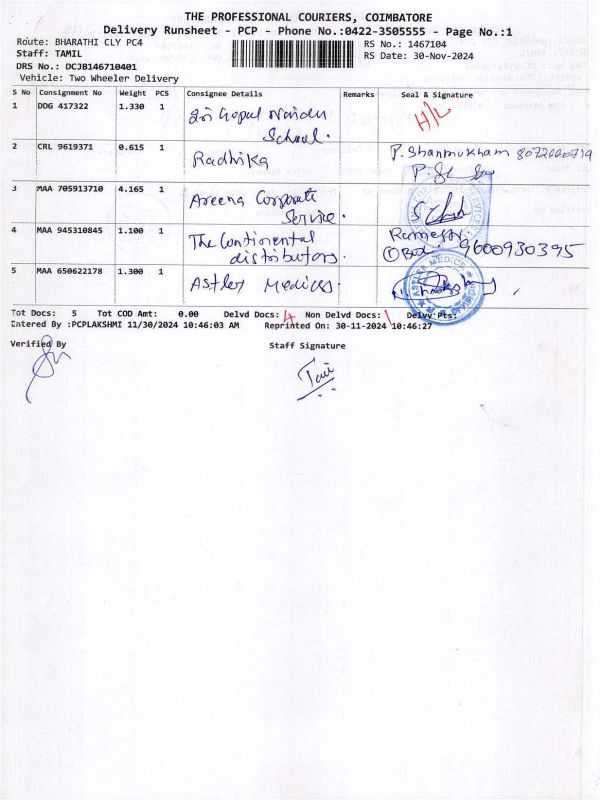 THE PROFESSIONAL COURIERS, COIMBATORE
Delivery Runsheet - PCP - Phone No.:0422-3505555 - Page No.:1
Route: BHARATHI CLY PC4
RS No.: 1467104
Staff: TAMIL
RS Date: 30-Nov-2024
DRS No.: DCJB146710401
Vehicle: Two Wheeler Delivery
S No Consignment No Weight PCS Consignee Details Remarks Seal & Signature
1 DDG 417322 1.330 1 Sri Gopal Naidu School. H/L
2 CRL 9619371 0.615 1 Radhika P. Shanmukham
3 MAA 705913710 4.165 1 Areena Corporate Service.
4 MAA 945310845 1.100 1 The Continental distributors. 9600930395
5 MAA 650622178 1.300 1 Astler Medices. ASTLER MEDICE
Tot Docs: 5 Tot COD Amt: 0.00 Delvd Docs: 4 Non Delvd Docs: 1 Delvy Pts:
Entered By :PCPLAKSHMI 11/30/2024 10:46:03 AM Reprinted On: 30-11-2024 10:46:27
Verified By Staff Signature